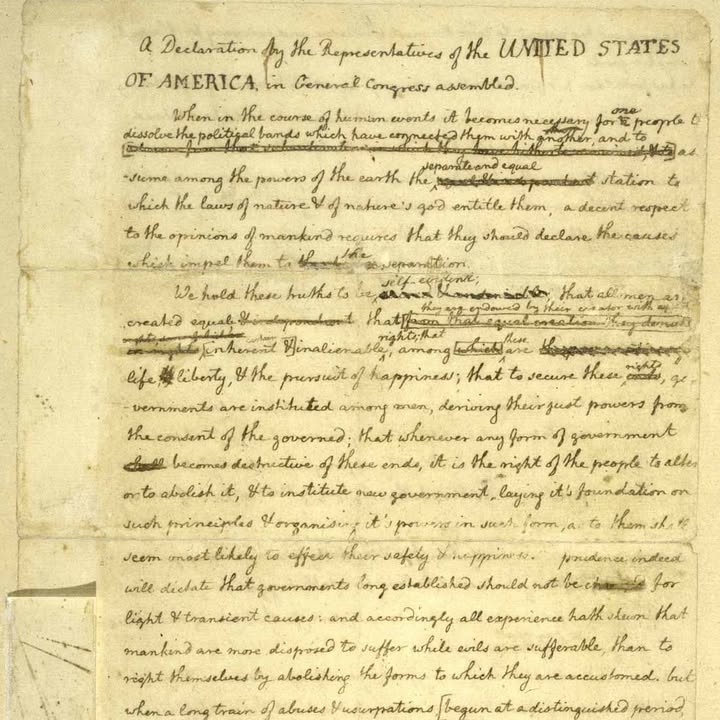 A Declaration by the Representatives of the UNITED STATES
OF AMERICA, in General Congress assembled.
When in the course of human events it becomes necessary for one people to
dissolve the political bands which have connected them with another, and to
as
-sume among the powers of the earth the separate and equal station to
which the laws of nature & of nature's god entitle them, a decent respect
to the opinions of mankind requires that they should declare the causes
which impel them to the separation.
We hold these truths to be self-evident, that all men are
they are endowed by their creator with
created equal & independant that [from that equal creation they derive
rights; that these
[inherent &] inalienable, among [which] are
life, liberty, & the pursuit of happiness; that to secure these rights, go
-vernments are instituted among men, deriving their just powers from
the consent of the governed; that whenever any form of government
shall becomes destructive of these ends, it is the right of the people to alter
or to abolish it, & to institute new government, laying it's foundation on
such principles & organising it's powers in such form, as to them shall
seem most likely to effect their safety & happiness. prudence indeed
will dictate that governments long established should not be changed for
light & transient causes: and accordingly all experience hath shewn that
mankind are more disposed to suffer while evils are sufferable, than to
right themselves by abolishing the forms to which they are accustomed. but
when a long train of abuses & usurpations [begun at a distinguished period